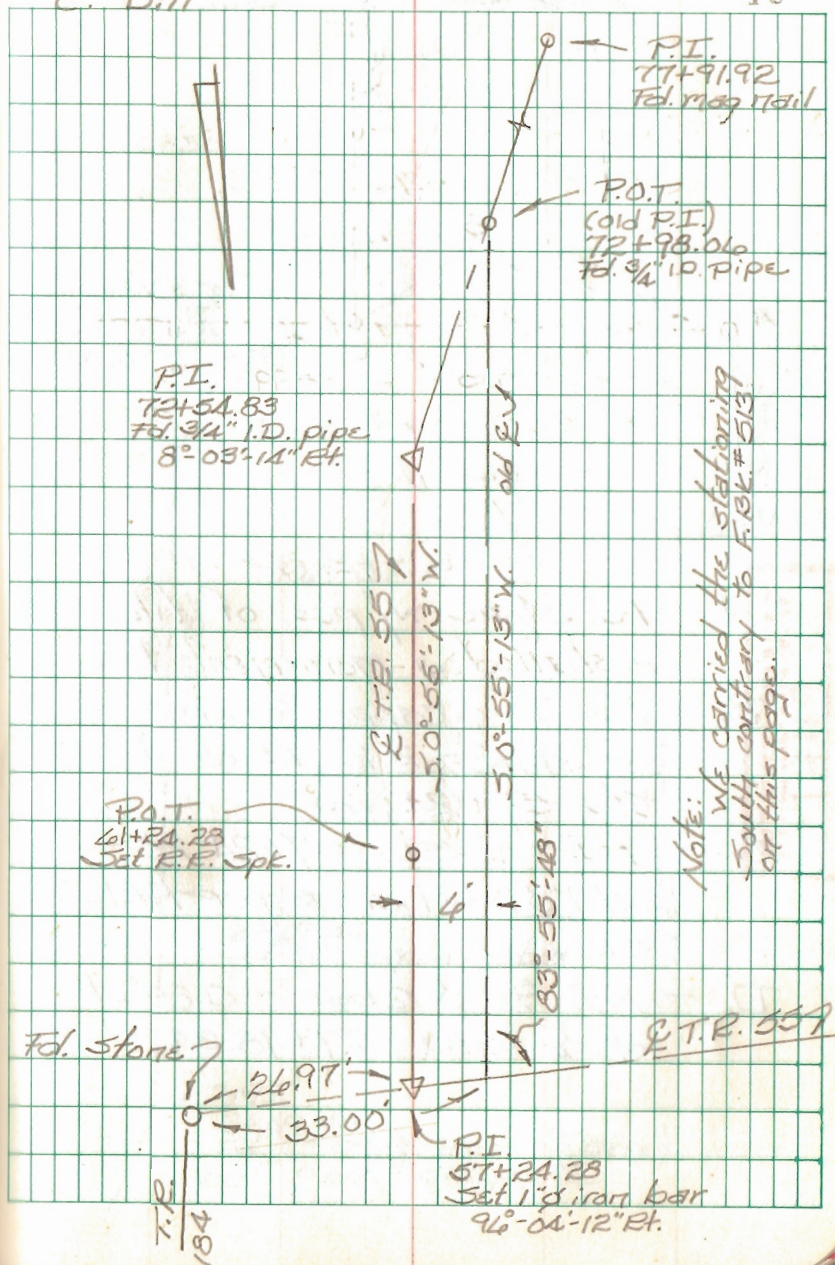 P.I.
77+91.92
Fd. mag nail
P.O.T.
(old P.I.)
72+98.06
Fd. 3/4" I.D. pipe
P.I.
72+54.83
Fd. 3/4" I.D. pipe
8°-03'-14" Rt.
old ℄
℄ T.R. 557
S.0°-55'-13"W.
S.0°-55'-13"W.
Note:
We carried the stationing
South contrary to F.BK.#513
on this page.
P.O.T.
61+24.28
Set R.R. Spk.
6'
83°-55'-48"
℄ T.R. 557
Fd. Stone
26.97'
33.00'
P.I.
57+24.28
Set 1"ø iron bar
96°-04'-12" Rt.
T.R.
184